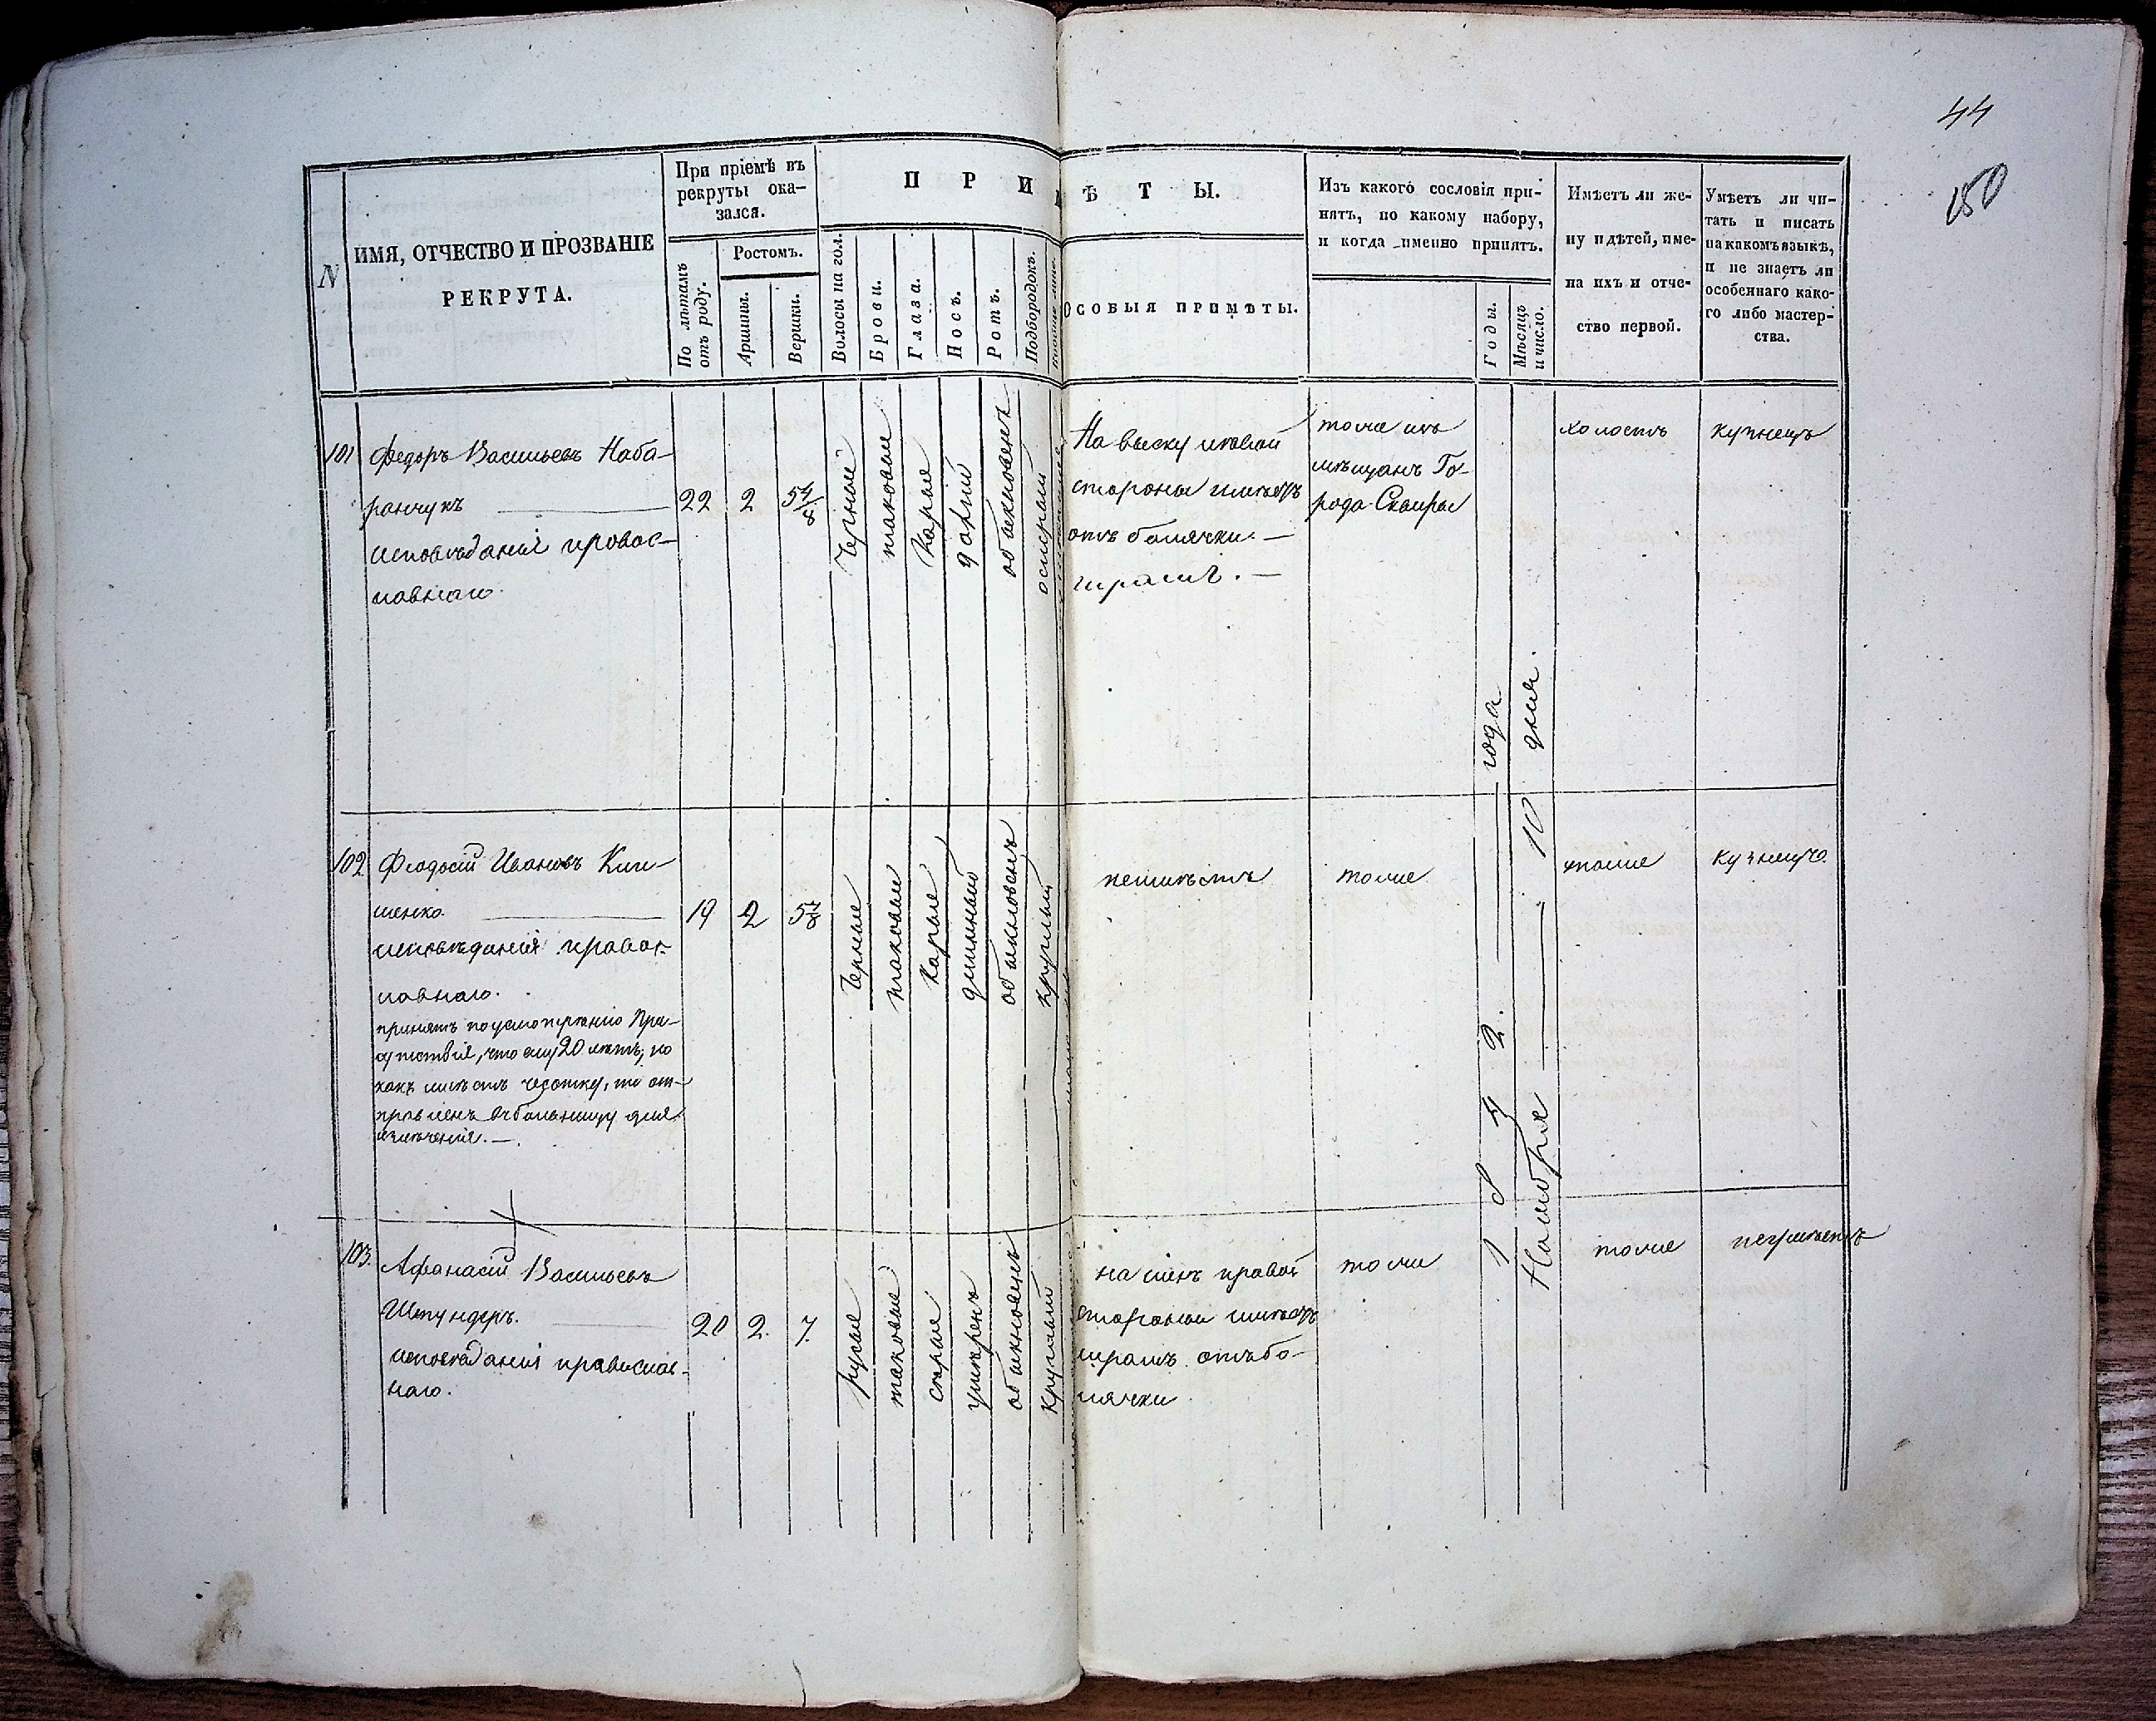 44
150
N
ИМЯ, ОТЧЕСТВО И ПРОЗВАНІЕ
РЕКРУТА.
При пріемѣ въ
рекруты ока-
зался.
По лѣтамъ
отъ роду.
Ростомъ.
Аршины.
Вершки.
П Р И М Ѣ Т Ы.
Волосы на гол.
Брови.
Глаза.
Носъ.
Ротъ.
Подбородокъ.
ОСОБЫЯ ПРИМѢТЫ.
Изъ какого сословія при-
нятъ, по какому набору,
и когда именно принятъ.
Годы.
Мѣсяцъ
и число.
Имѣетъ ли же-
ну и дѣтей, име-
на ихъ и отче-
ство первой.
Умѣетъ ли чи-
тать и писать
на какомъ языкѣ,
и не знаетъ ли
особеннаго како-
го либо мастер-
ства.
101
Федоръ Васильевъ Наба-
ранчукъ
исповѣданія правос-
лавнаго.
22
2
5 4/8
Черный
таковыи
Карыя
долгій
обыкновенъ
острый
На виску лѣвой
стороны имѣетъ
отъ болячки. —
шрамъ. —
тоже изъ
мѣщанъ Го-
рода Сквиры
холостъ
кузнецъ
102
Феодосій Ивановъ Кли-
менко.
исповѣданія правос-
лавнаго.
принятъ по усмотрѣнію При-
сутствія, что ему 20 лѣтъ, но
какъ имѣетъ чесотку, то от-
правленъ въ больницу для
излѣченія. —
19
2
5 7/8
Черные
таковыи
Карые
длинный
обыкновенъ
круглый
неимѣетъ
тоже
тоже
кузнецъ.
103.
Афанасій Васильевъ
Штундеръ.
исповѣданія православ-
наго.
20
2.
7.
русые
таковые
серые
умѣренъ
обыкновенъ
круглый
на шеѣ правой
стороны имѣетъ
шрамъ отъ бо-
лячки
тоже
тоже
неумѣетъ
1842. года
Ноября 10 дня.